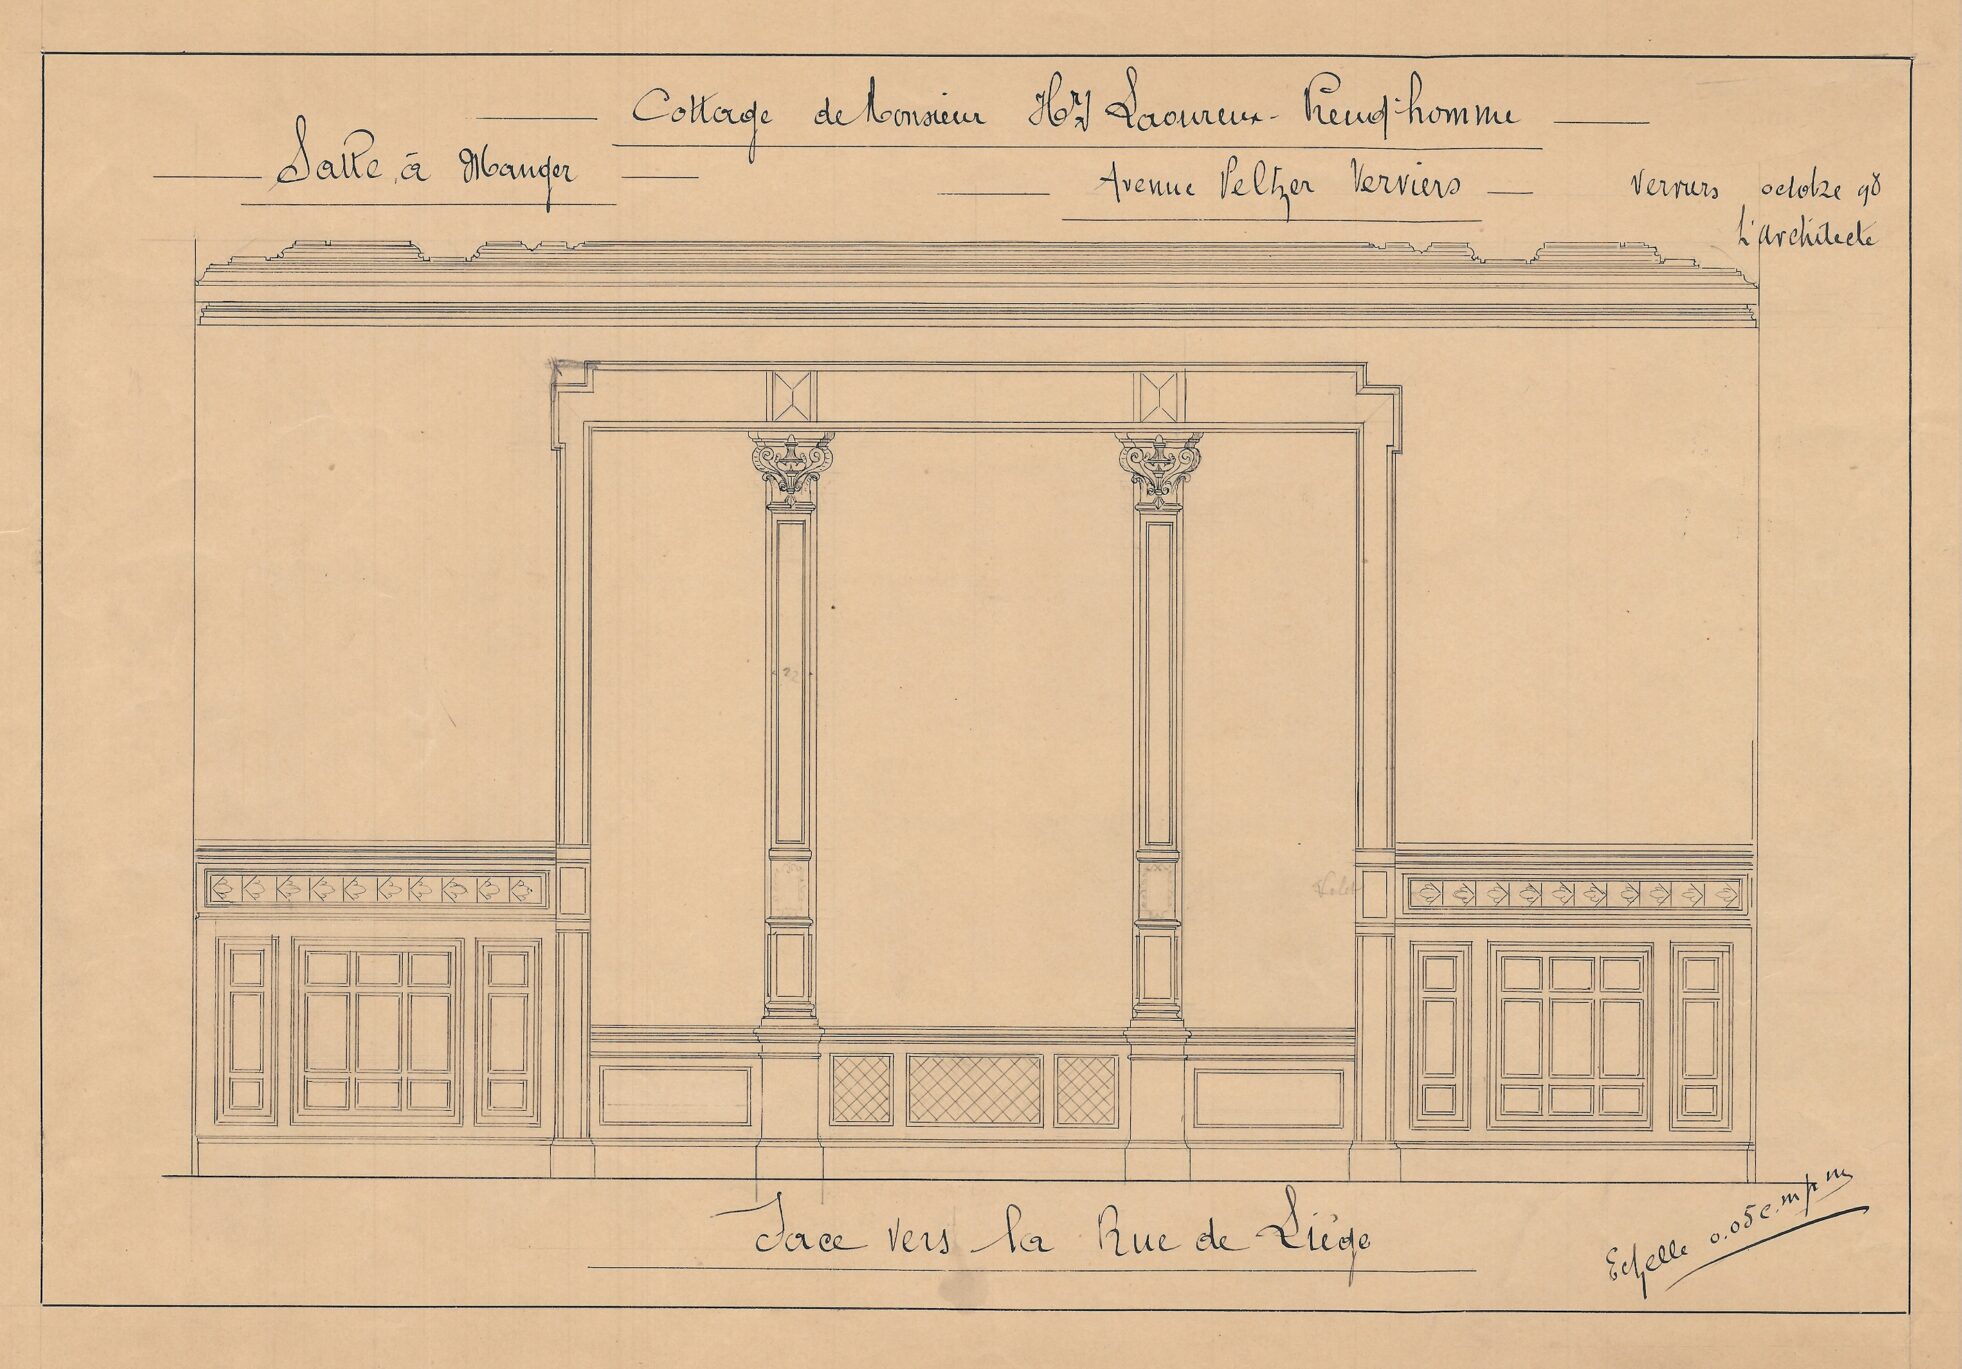 Cottage de Monsieur Hry Laoureux-Preud'homme
Salle à Manger
Avenue Peltzer Verviers
Verviers octobre 98
L'architecte
22
Face vers la Rue de Liège
Echelle 0.05 c.m p m